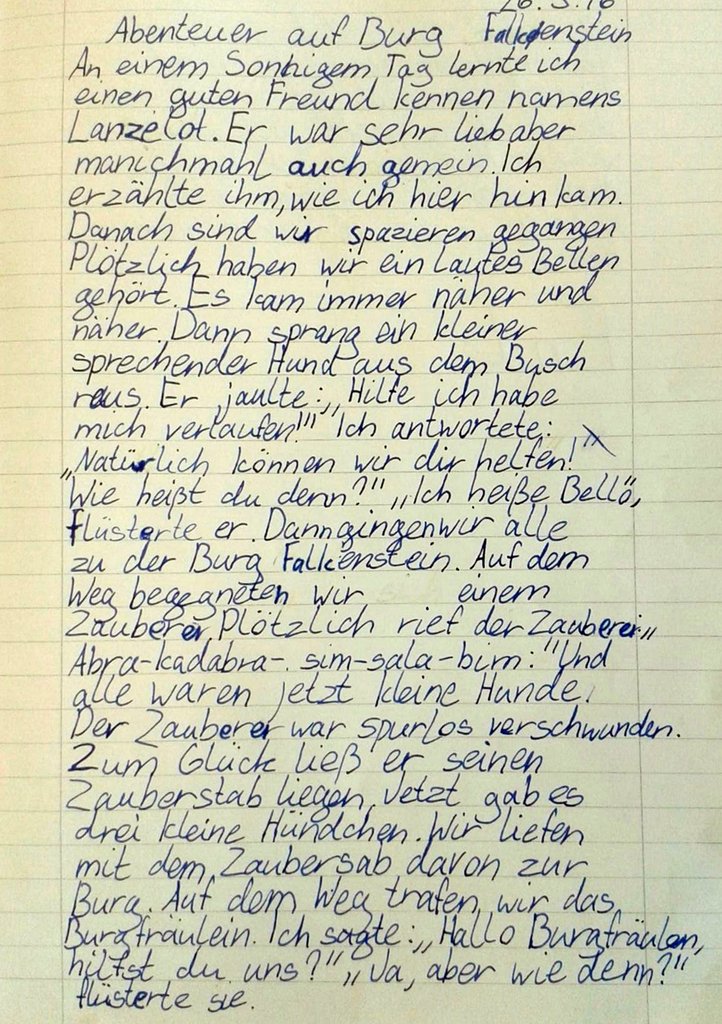 26.5.16
Abenteuer auf Burg Falkenstein
An einem Sonnigem Tag lernte ich
einen guten Freund kennen namens
Lanzelot. Er war sehr lieb aber
manichmahl auch gemein. Ich
erzählte ihm, wie ich hier hin kam.
Danach sind wir spazieren gegangen
Plötzlich haben wir ein lautes Bellen
gehört. Es kam immer näher und
näher. Dann sprang ein kleiner
sprechender Hund aus dem Busch
raus. Er jaulte: „Hilfe ich habe
mich verlaufen!" Ich antwortete:
„Natürlich können wir dir helfen!"
Wie heißt du denn?" „Ich heiße Bello",
flüsterte er. Dann gingen wir alle
zu der Burg Falkenstein. Auf dem
Weg begegneten wir einem
Zauberer. Plötzlich rief der Zauberer: „
Abra-kadabra-. sim-sala-bim:" Und
alle waren jetzt kleine Hunde.
Der Zauberer war spurlos verschwunden.
Zum Glück ließ er seinen
Zauberstab liegen. Jetzt gab es
drei kleine Hündchen. Wir liefen
mit dem Zaubersab davon zur
Burg. Auf dem Weg trafen wir das
Burgfräulein. Ich sagte: „Hallo Burgfräulen,
hilfst du uns?" „Ja, aber wie denn?"
flüsterte sie.